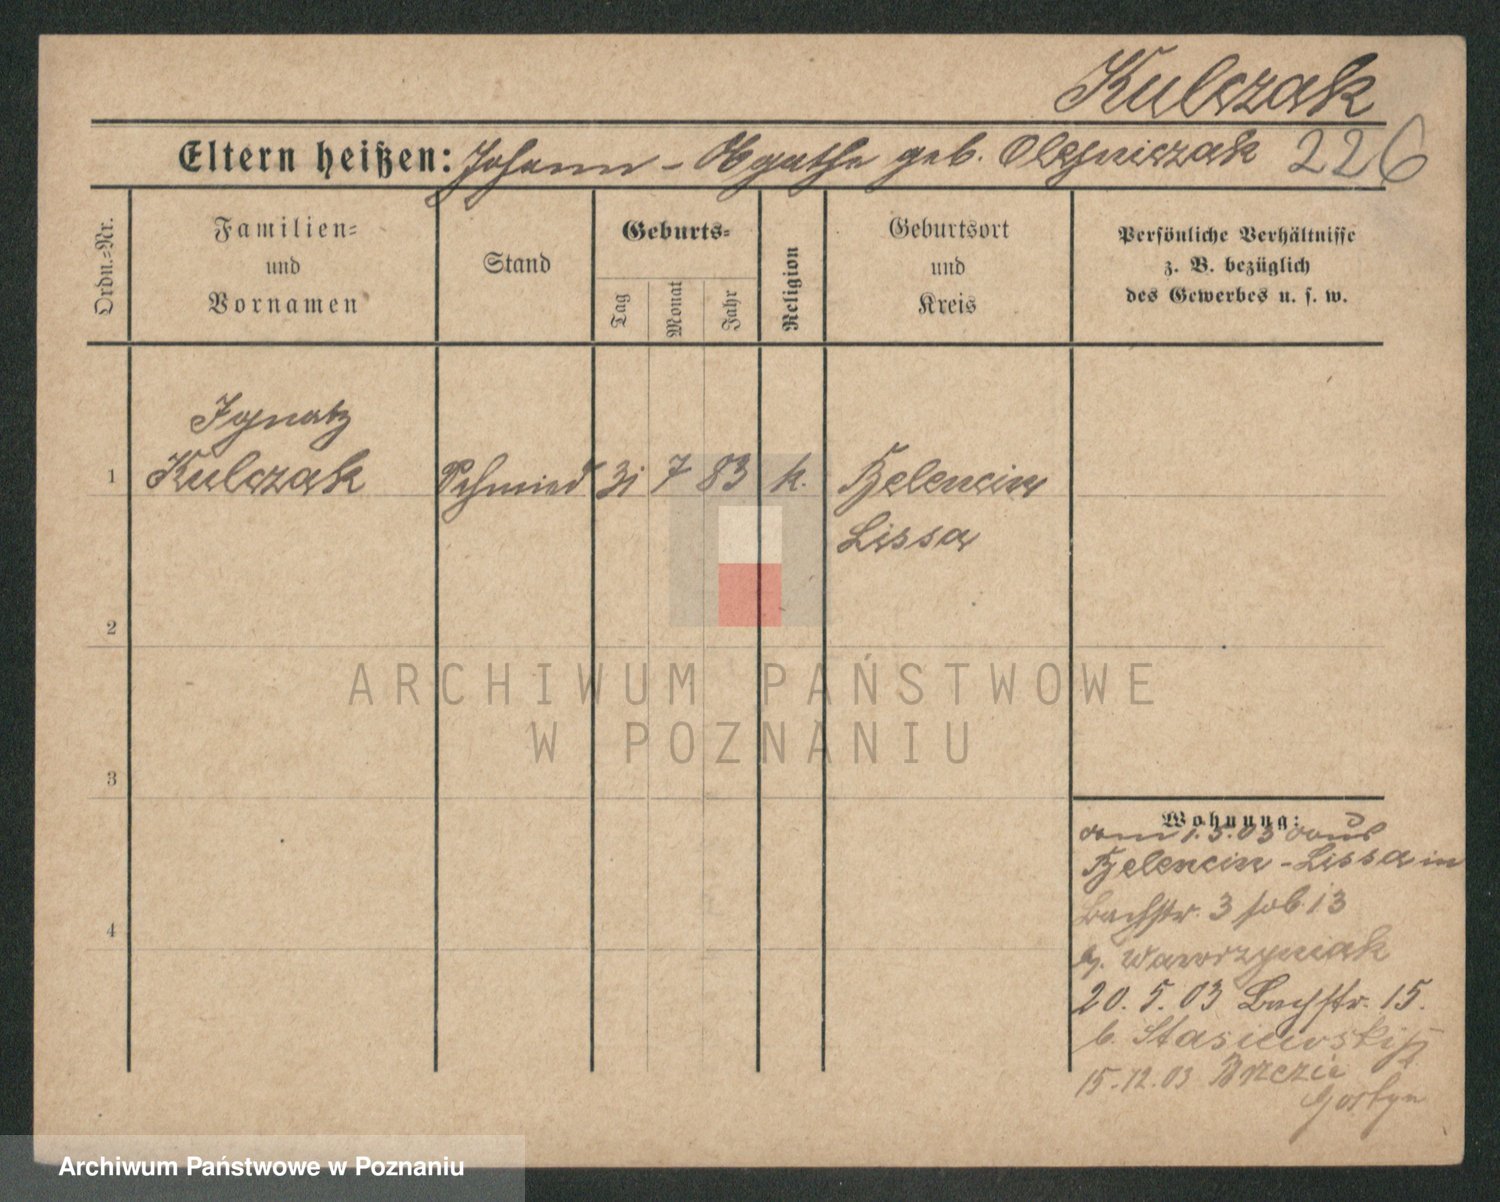 Kulczak
Eltern heißen: Johann - Agathe geb. Olejniczak 226
Ordn.=Nr.
Familien=
und
Vornamen
Stand
Geburts=
Tag
Monat
Jahr
Religion
Geburtsort
und
Kreis
Persönliche Verhältnisse
z. B. bezüglich
des Gewerbes u. s. w.
Ignatz
1 Kulczak Schmied 31 7 83 k.
Lissa
2
3
4
Wohnung:
1.5.03 aus
Lissa in
Bachstr. 3 13
Wawrzyniak
20. 5. 03 Bachstr. 15.
b. Stasiewski
15.12.03 Brzezie
Gostyn
ARCHIWUM PAŃSTWOWE
W POZNANIU
Archiwum Państwowe w Poznaniu